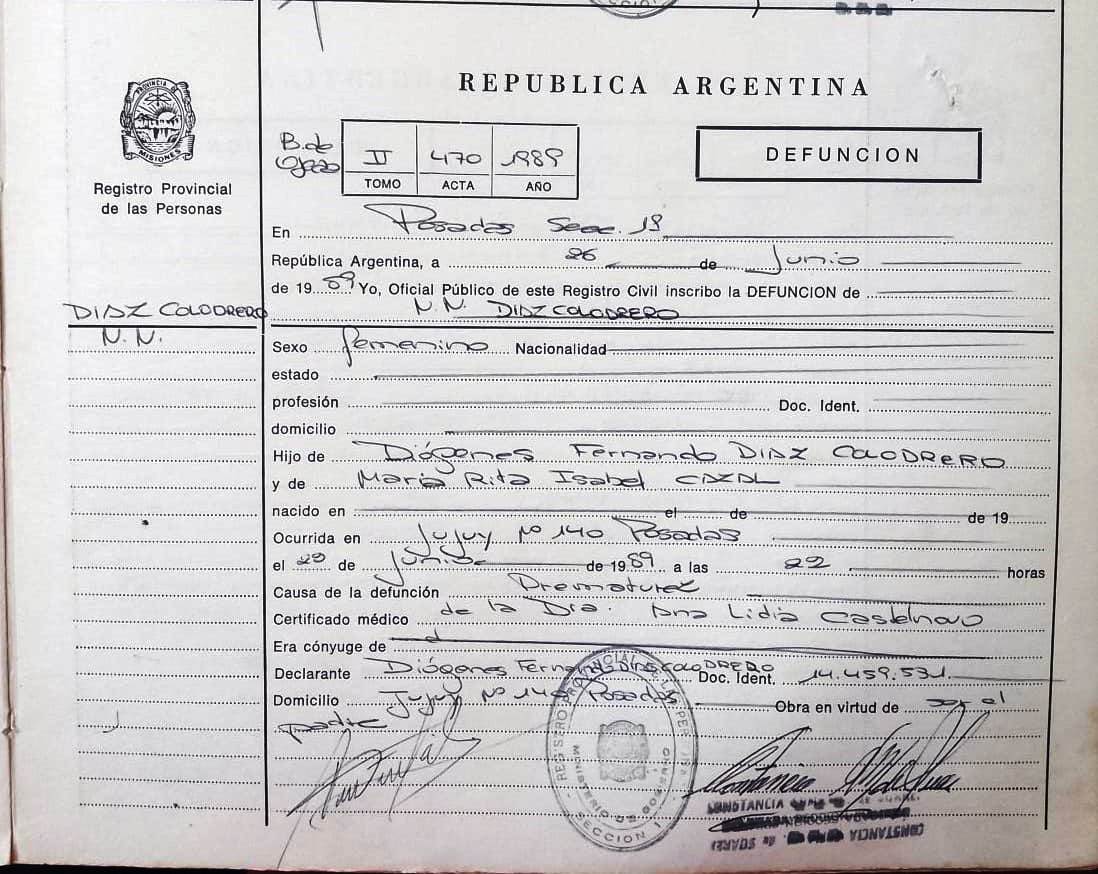 REPUBLICA ARGENTINA
PROVINCIA DE MISIONES
Registro Provincial
de las Personas
B. de
II 470 1989
TOMO ACTA AÑO
DEFUNCION
En Posadas Secc. 1ª
República Argentina, a 26 de Junio
de 1989 Yo, Oficial Público de este Registro Civil inscribo la DEFUNCION de
N.N. DIAZ COLODRERO
DIAZ COLODRERO
N.N.
Sexo femenino Nacionalidad
estado
profesión Doc. Ident.
domicilio
Hijo de Diógenes Fernando DIAZ COLODRERO
y de María Rita Isabel CAZAL
nacido en el de de 19
Ocurrida en Jujuy Nº 140 Posadas
el de Junio de 1989 a las 22 horas
Causa de la defunción Prematurez
Certificado médico de la Dra. Ana Lidia Castelnovo
Era cónyuge de
Declarante Diógenes Fernando DIAZ COLODRERO Doc. Ident. 14.459.531
Domicilio Jujuy Nº 140 Posadas Obra en virtud de ser el
padre
REGISTRO PROVINCIAL DE LAS PERSONAS
MINISTERIO DE GOBIERNO
SECCION 1
CONSTANCIA
CONSTANCIA de SUAREZ